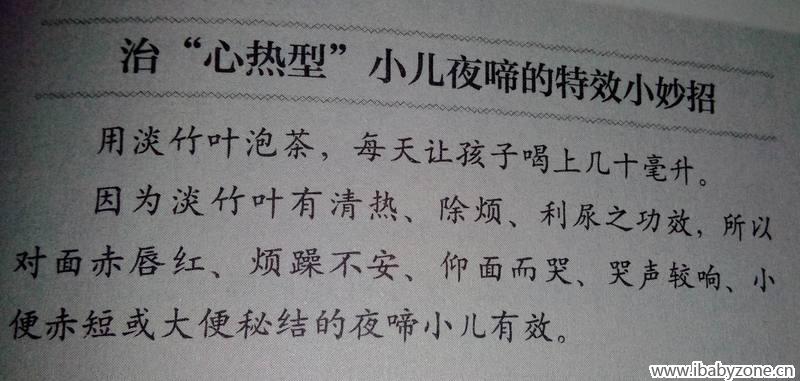 治“心热型”小儿夜啼的特效小妙招
用淡竹叶泡茶，每天让孩子喝上几十毫升。
因为淡竹叶有清热、除烦、利尿之功效，所以
对面赤唇红、烦躁不安、仰面而哭、哭声较响、小
便赤短或大便秘结的夜啼小儿有效。
www.ibabyzone.cn